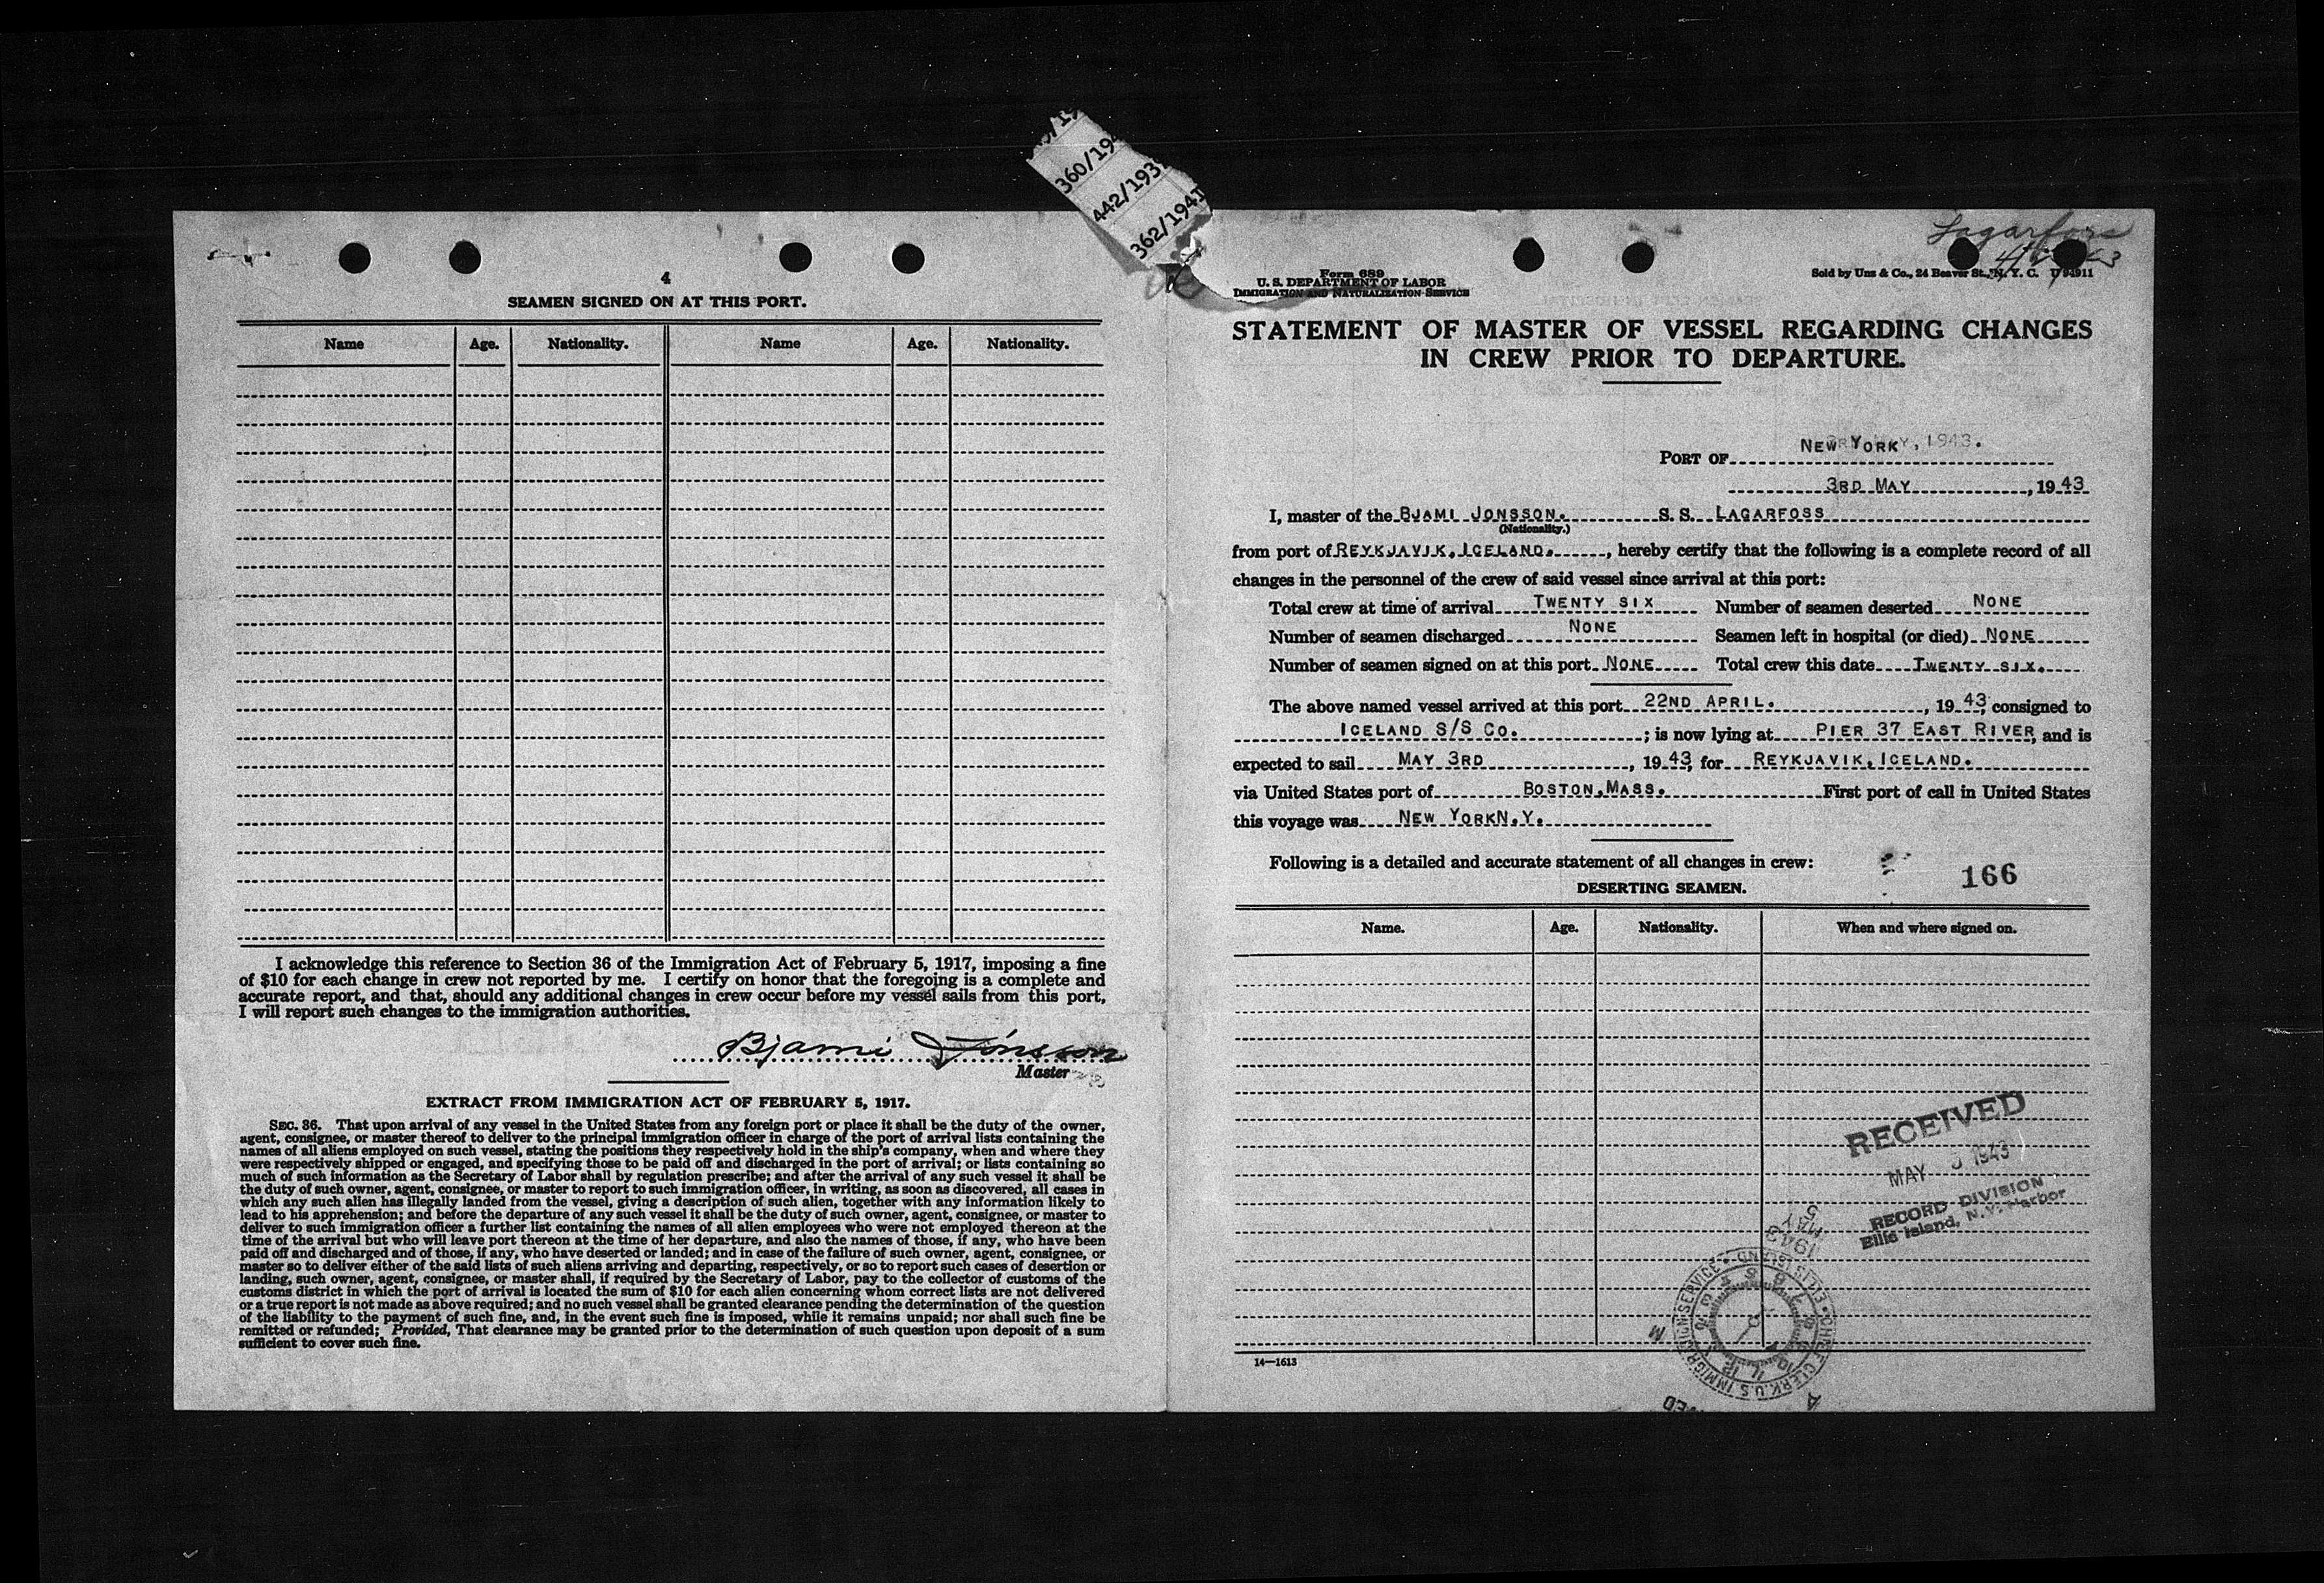 360/19
442/1939
362/1941
4
SEAMEN SIGNED ON AT THIS PORT.
Name Age. Nationality. Name Age. Nationality.
I acknowledge this reference to Section 36 of the Immigration Act of February 5, 1917, imposing a fine
of $10 for each change in crew not reported by me. I certify on honor that the foregoing is a complete and
accurate report, and that, should any additional changes in crew occur before my vessel sails from this port,
I will report such changes to the immigration authorities.
Bjarni Jónsson
Master
EXTRACT FROM IMMIGRATION ACT OF FEBRUARY 5, 1917.
SEC. 36. That upon arrival of any vessel in the United States from any foreign port or place it shall be the duty of the owner,
agent, consignee, or master thereof to deliver to the principal immigration officer in charge of the port of arrival lists containing the
names of all aliens employed on such vessel, stating the positions they respectively hold in the ship's company, when and where they
were respectively shipped or engaged, and specifying those to be paid off and discharged in the port of arrival; or lists containing so
much of such information as the Secretary of Labor shall by regulation prescribe; and after the arrival of any such vessel it shall be
the duty of such owner, agent, consignee, or master to report to such immigration officer, in writing, as soon as discovered, all cases in
which any such alien has illegally landed from the vessel, giving a description of such alien, together with any information likely to
lead to his apprehension; and before the departure of any such vessel it shall be the duty of such owner, agent, consignee, or master to
deliver to such immigration officer a further list containing the names of all alien employees who were not employed thereon at the
time of the arrival but who will leave port thereon at the time of her departure, and also the names of those, if any, who have been
paid off and discharged and of those, if any, who have deserted or landed; and in case of the failure of such owner, agent, consignee, or
master so to deliver either of the said lists of such aliens arriving and departing, respectively, or so to report such cases of desertion or
landing, such owner, agent, consignee, or master shall, if required by the Secretary of Labor, pay to the collector of customs of the
customs district in which the port of arrival is located the sum of $10 for each alien concerning whom correct lists are not delivered
or a true report is not made as above required; and no such vessel shall be granted clearance pending the determination of the question
of the liability to the payment of such fine, and, in the event such fine is imposed, while it remains unpaid; nor shall such fine be
remitted or refunded; Provided, That clearance may be granted prior to the determination of such question upon deposit of a sum
sufficient to cover such fine.
Lagarfoss
Form 689
U. S. DEPARTMENT OF LABOR
IMMIGRATION AND NATURALIZATION SERVICE
Sold by Unz & Co., 24 Beaver St., N. Y. C.
STATEMENT OF MASTER OF VESSEL REGARDING CHANGES
IN CREW PRIOR TO DEPARTURE.
PORT OF NEW YORK, 1943.
3RD MAY, 19 43
I, master of the BJAMI JONSSON. S. S. LAGARFOSS
(Nationality.)
from port of REYKJAVIK, ICELAND., hereby certify that the following is a complete record of all
changes in the personnel of the crew of said vessel since arrival at this port:
Total crew at time of arrival TWENTY SIX Number of seamen deserted NONE
Number of seamen discharged NONE Seamen left in hospital (or died) NONE
Number of seamen signed on at this port NONE Total crew this date TWENTY SIX.
The above named vessel arrived at this port 22ND APRIL., 19 43, consigned to
ICELAND S/S CO.; is now lying at PIER 37 EAST RIVER, and is
expected to sail MAY 3RD, 19 43, for REYKJAVIK, ICELAND.
via United States port of BOSTON, MASS. First port of call in United States
this voyage was NEW YORKN.Y.
Following is a detailed and accurate statement of all changes in crew:
166
DESERTING SEAMEN.
Name. Age. Nationality. When and where signed on.
RECEIVED
MAY 1943
RECORD DIVISION
Ellis Island, N.Y. Harbor
MAY 5
1943
CHIEF CLERK U.S. IMMIGRATION SERVICE • ELLIS ISLAND
14—1613